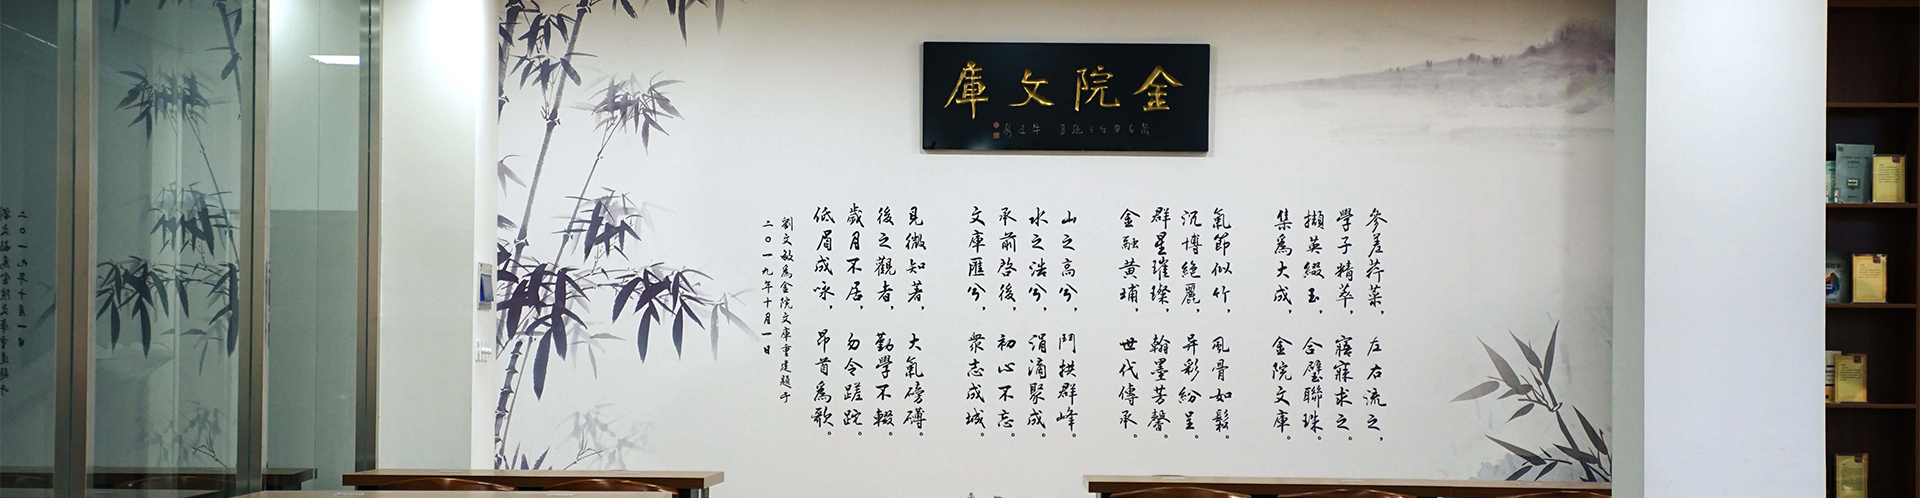 金院文庫
參差荇菜，左右流之，
學子精萃，寤寐求之。
擷英綴玉，合璧聯珠。
集爲大成，金院文庫。
氣節似竹，風骨如鬆。
沉博絕麗，异彩紛呈。
群星璀璨，翰墨芳馨。
金融黃埔，世代傳承。
山之高兮，鬥拱群峰。
水之浩兮，涓滴聚成。
承前啓後，初心不忘。
文庫匯兮，衆志成城。
見微知著，大氣磅礴。
後之觀者，勤學不輟。
歲月不居，勿令蹉跎。
低眉成咏，昂首爲歌。
劉文敏爲金院文庫重建題于
二〇一九年十月一日